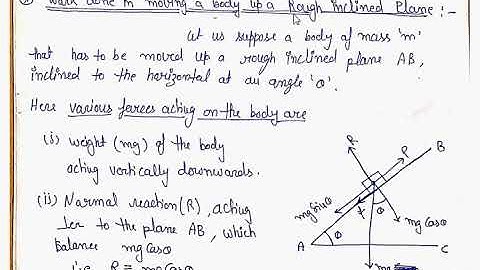 Work done in moving a body up a Rough inclined Plane :-
Let us suppose a body of mass 'm'
that has to be moved up a rough inclined plane AB,
inclined to the horizontal at an angle 'θ'.
Here various forces acting on the body are
(i) weight (mg) of the body
acting vertically downwards.
(ii) Normal reaction (R), acting
⊥er to the plane AB, which
balance mgcosθ
i.e. R = mgcosθ
R
P
B
mgsinθ
f
θ
mgcosθ
A
θ
C
mg